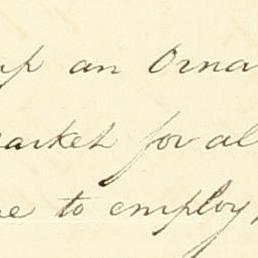 up an Orna
market for al
me to employ,